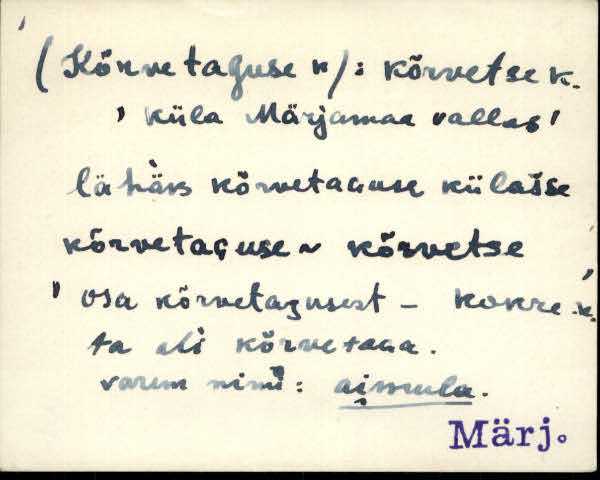 (Kõrvetaguse k): kõrvetse k.
' küla Märjamaa vallas'
lähäks kõrvetaguse külasse
kõrvetaguse ~ kõrvetse
' osa kõrvetagusest - kokre k.'
ta oli kõrvetaga.
varem nimi:
Märj.